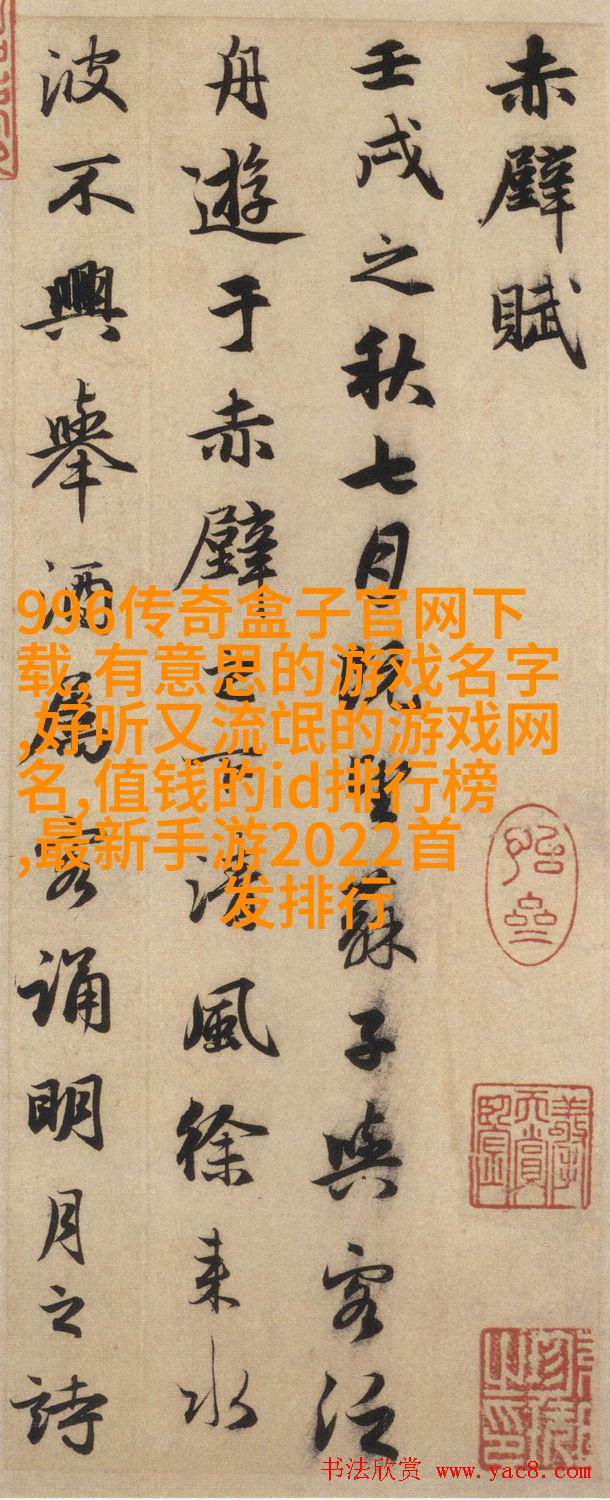 赤壁賦
壬戌之秋七月既望蘇子與客泛
舟遊于赤壁之下清風徐來水
波不興舉酒屬客誦明月之詩
996传奇盒子官网下
载,有意思的游戏名字
,好听又流氓的游戏网
名,值钱的id排行榜
,最新手游2022首
发排行
书法欣赏 www.yac8.com